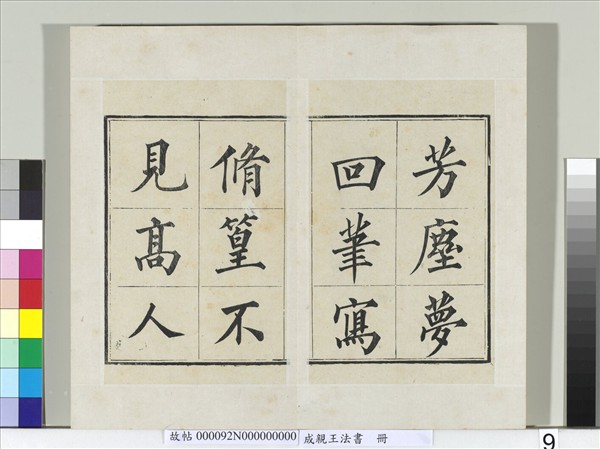 芳塵夢
回筆寫
脩篁不
見髙人
故帖 000092N000000000 成親王法書 冊
9